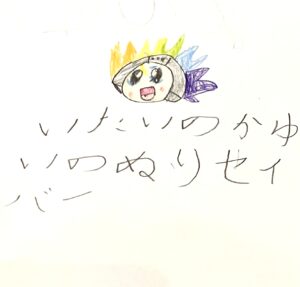 いたいのかゆ
いのぬりセイ
バー